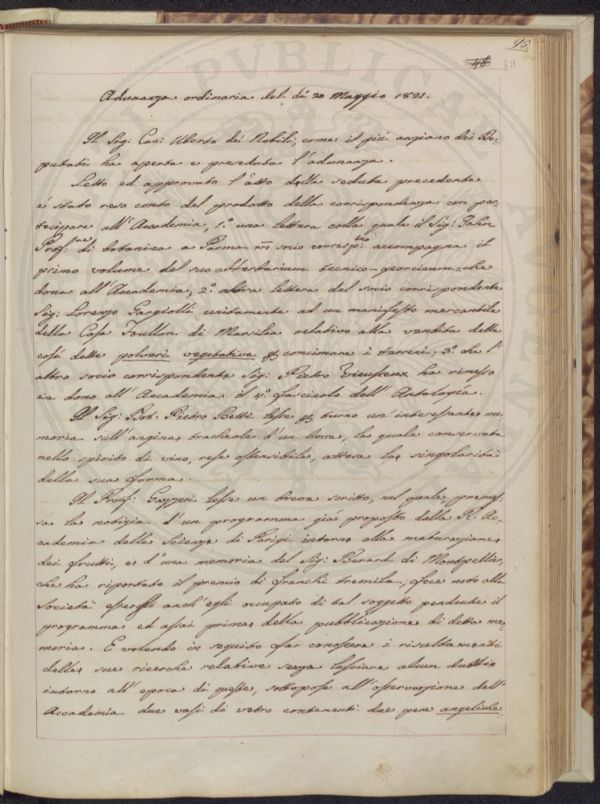 43.
48. 43
Adunanza ordinaria del dì 20 Maggio 1821.
Il Sig: Cav: Uberto dè Nobili, come il più anziano dei De-
putati ha aperta e preseduta l'adunanza.
Letto ed approvato l'atto della seduta precedente
è stato reso conto del prodotto della corrispondenza con par-
tecipare all'Accademia, 1.° una lettera colla quale il Sig:
Prof: di botanica a Parma socio corrisp: accompagna il
primo volume del suo che
dona all'Accademia; 2.° altra lettera del socio corrispondente
Sig: Lorenzo unitamente ad un manifesto mercantile
della Casa di Marsilia relativo alla vendita delle
così dette polveri vegetative concimare i terreni; 3.° che l'
altro socio corrispondente Sig: Pietro Vieusseux ha rimesso
in dono all'Accademia il 4.° fascicolo dell'Antologia.
Il Sig: Dot: Pietro Betti lesse turno un'interessante me-
moria sull'angina tracheale d'un bove, la quale conservata
nello spirito di vino, rese ostensibile, attesa la singolarità
della sua forma.
Il Prof: Gazzeri lesse un breve scritto, nel quale, premes-
sa la notizia d'un programma già proposto dalla R. Ac-
cademia delle Scienze di Parigi intorno alla maturazione
dei frutti, e d'una memoria del Sig: Berard di Montpellier,
che ha riportato il premio di franchi tremila, fece noto alla
Società essersi anch'egli occupato di tal soggetto pendente il
programma ed assai prima della pubblicazione di detta me-
moria. E volendo in seguito far conoscere i risultamenti
delle sue ricerche relative senza lasciare alcun dubbio
intorno all'epoca di queste, sottopose all'osservazione dell'
Accademia due vasi di vetro contenenti due pere angeliche